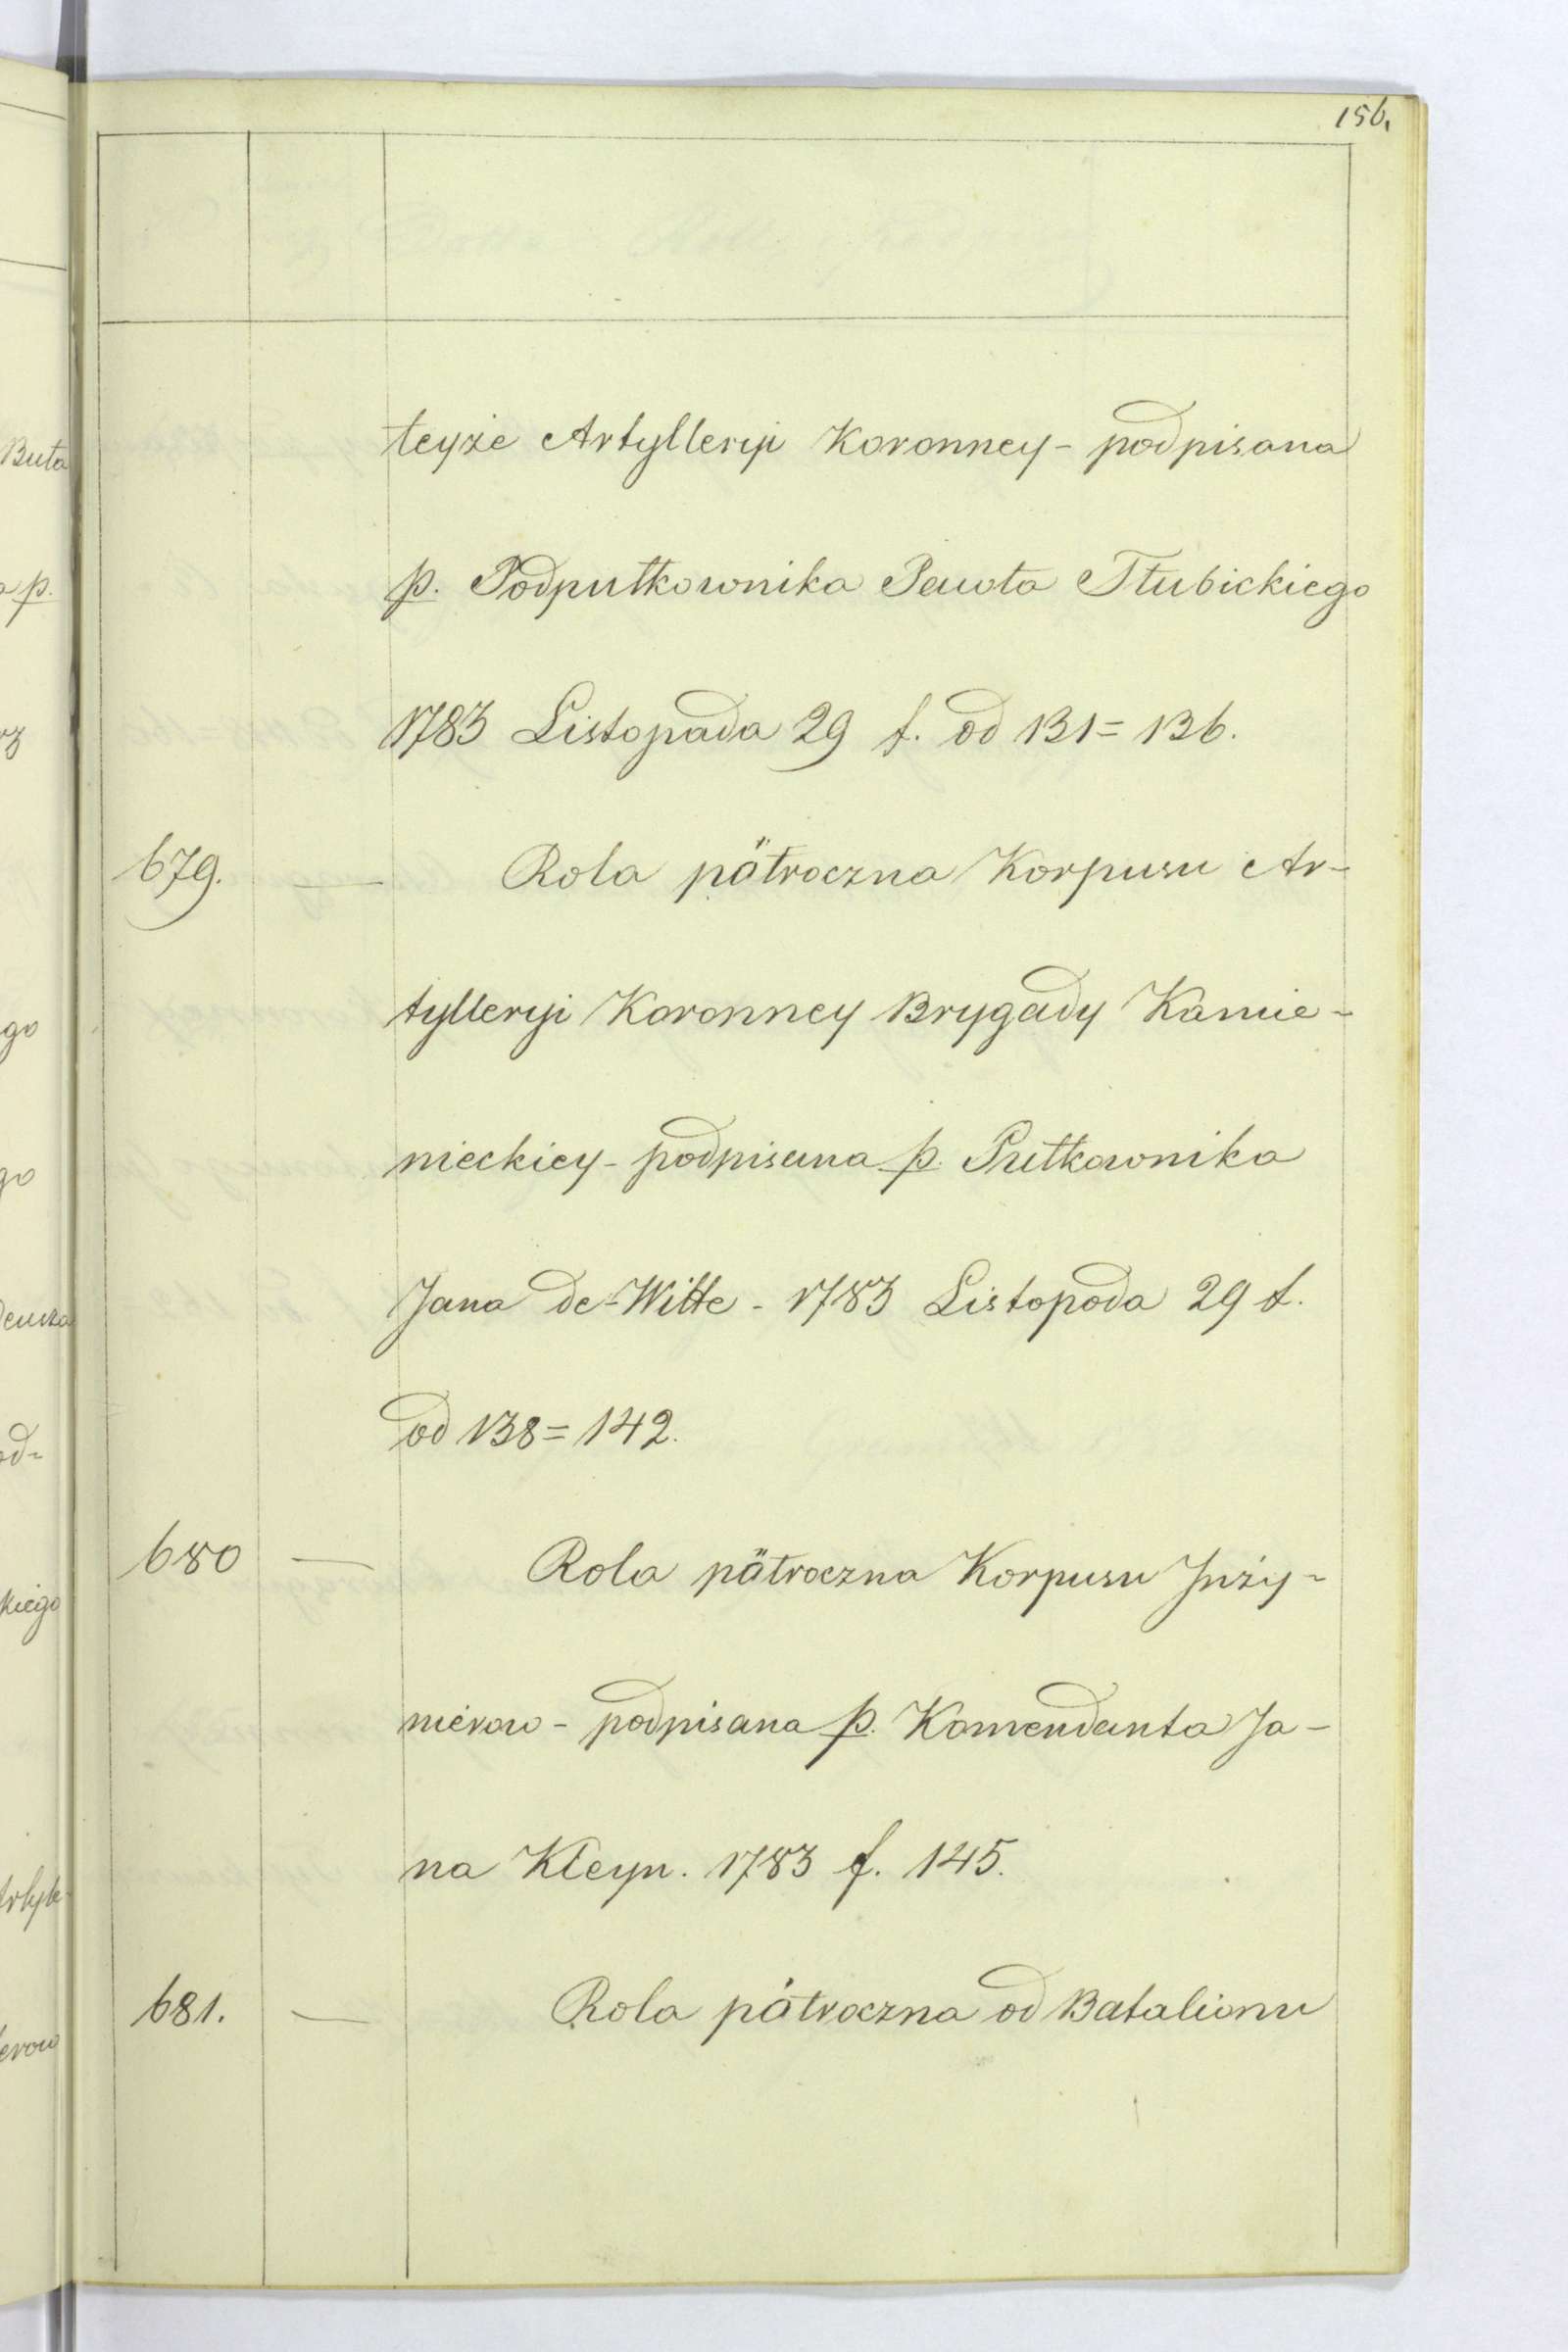 156.
teyże Artylleryi Koronney - podpisana
p. Podpułkownika Pawła Tłubickiego
1783 Listopada 29 f. od 131 = 136.
679. — Rola półroczna Korpusu Ar-
tylleryi Koronney Brygady Kamie-
nieckiey - podpisana p. Pułkownika
Jana de-Witte - 1783 Listopada 29 f.
od 138 = 142.
680 — Rola półroczna Korpusu Jnży-
nierow - podpisana p. Komendanta Ja-
na Kleyn. 1783 f. 145.
681. — Rola półroczna od Batalionu